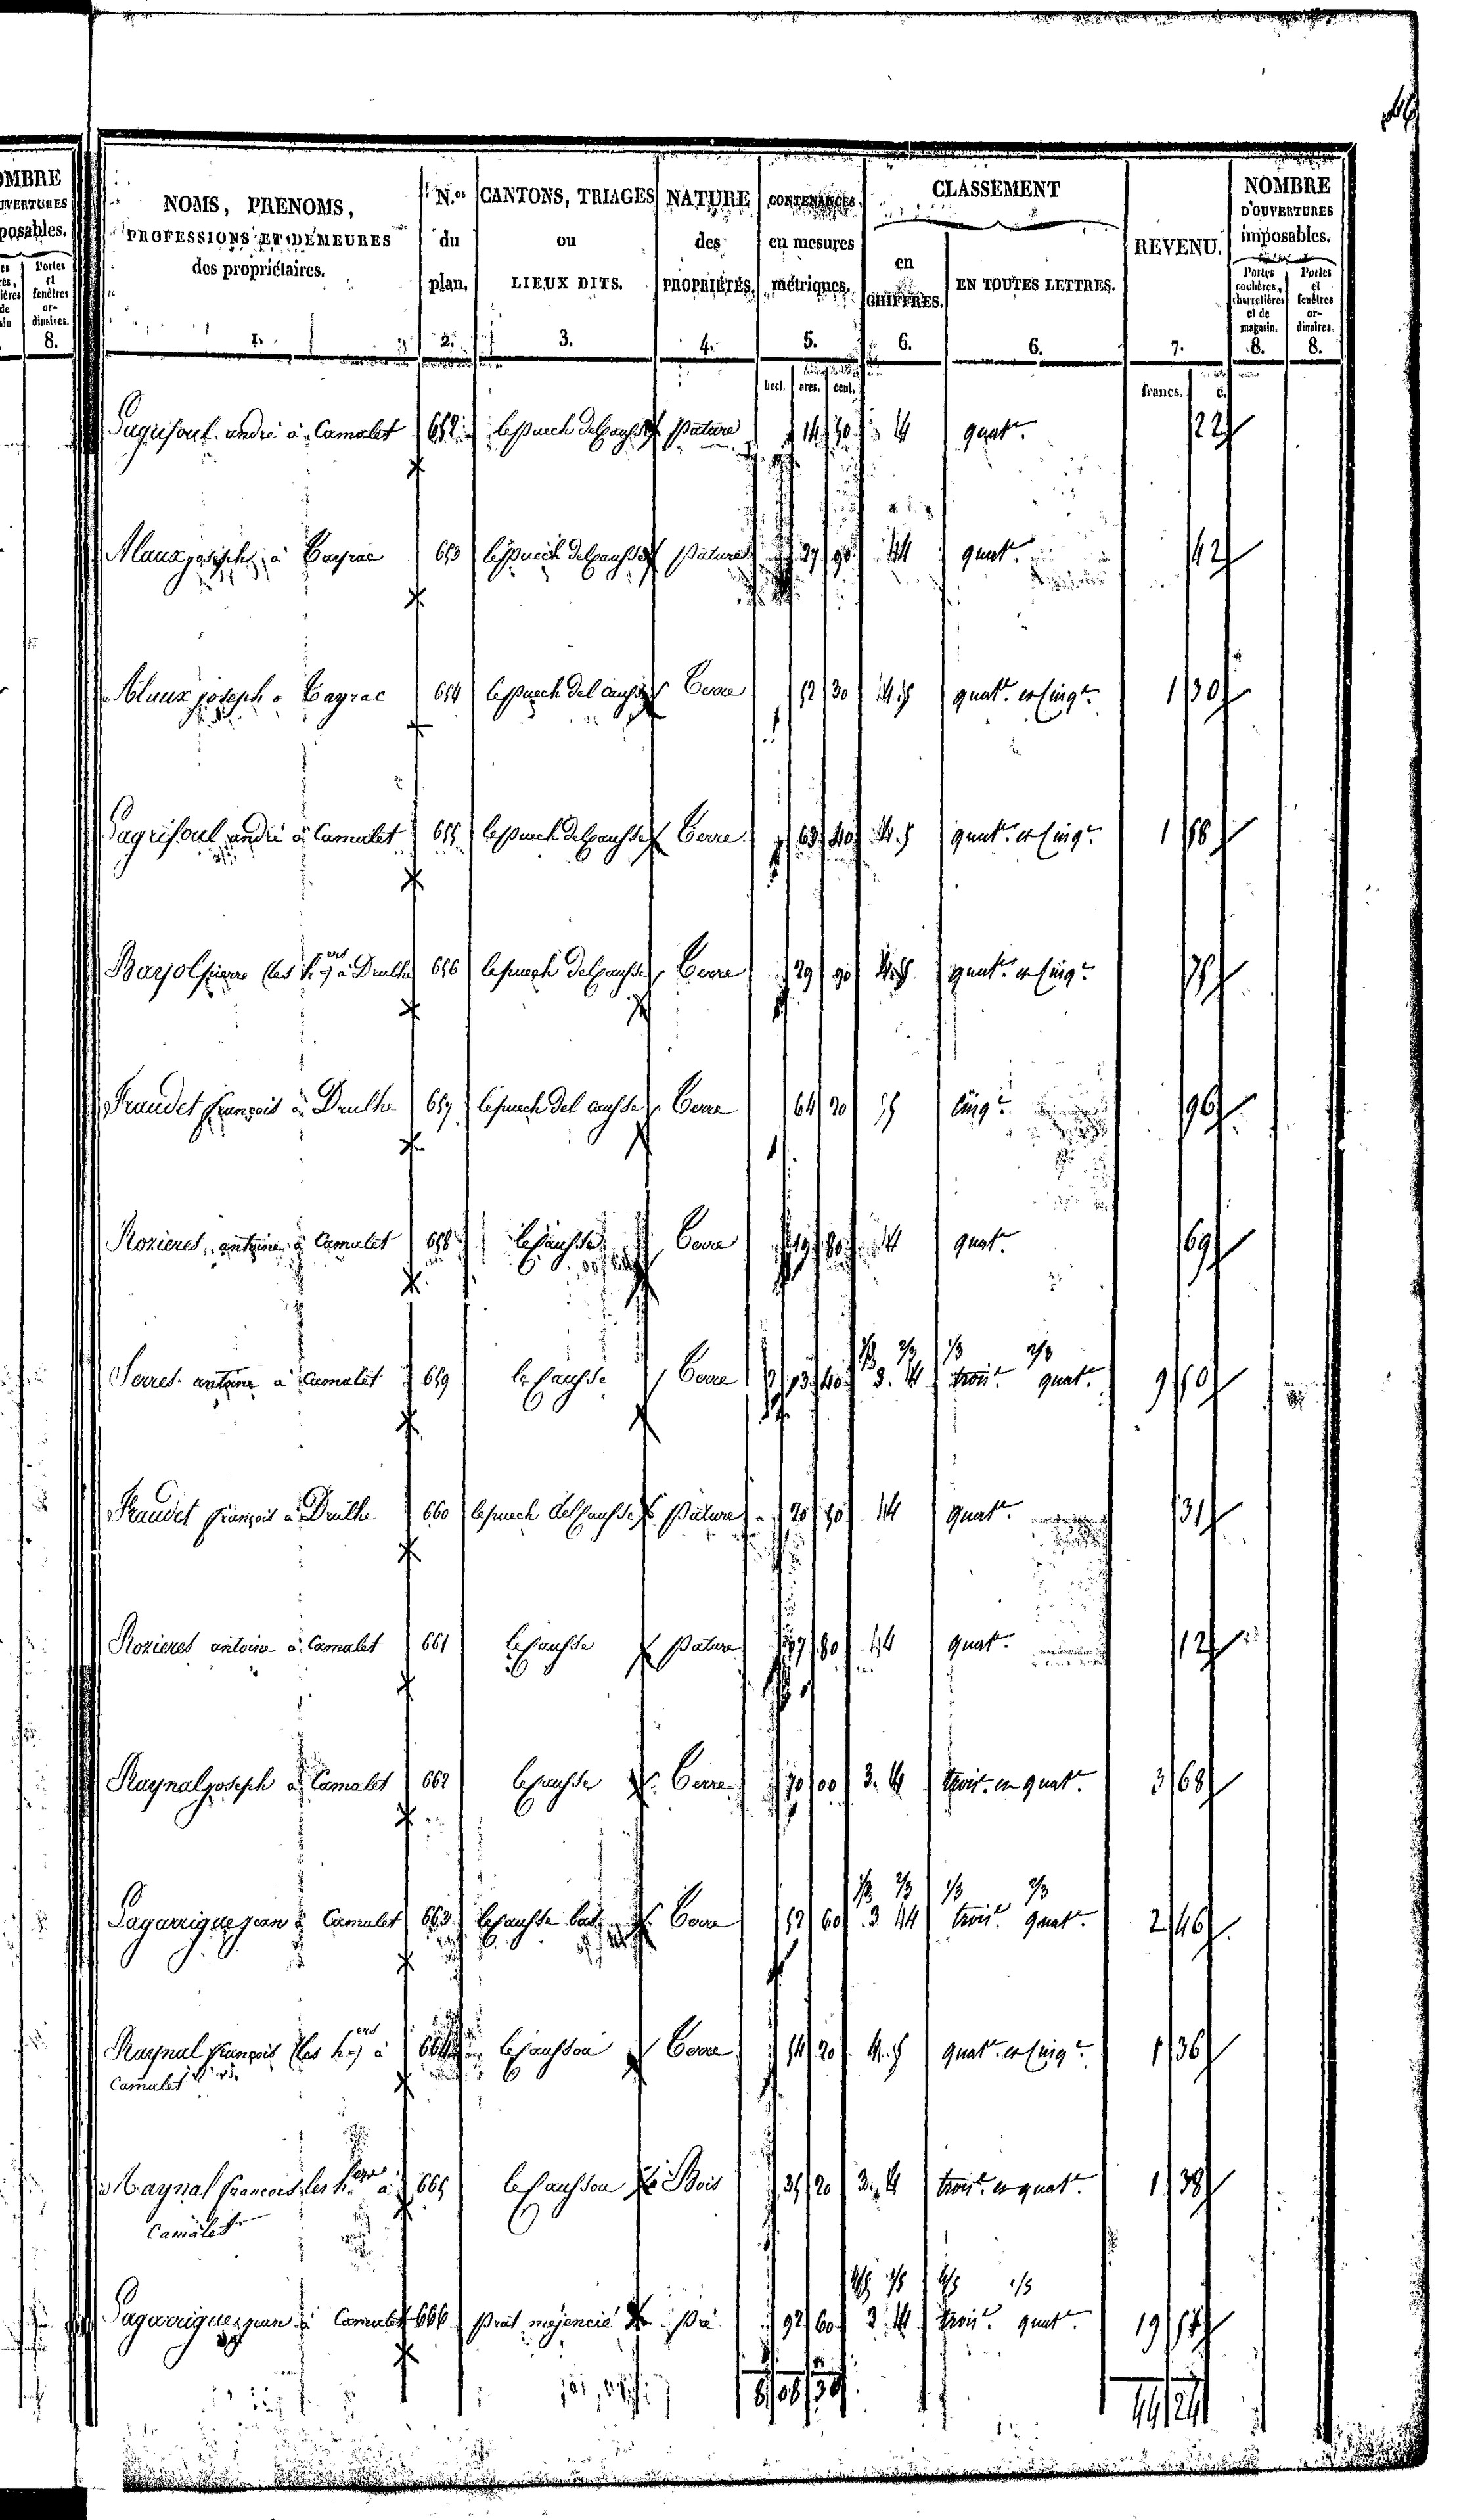 OMBRE
OUVERTURES
posables.
Portes et fenêtres or- dinaires.
8.
NOMS, PRENOMS, PROFESSIONS ET DEMEURES des propriétaires. 1.
N.os du plan. 2.
CANTONS, TRIAGES ou LIEUX DITS. 3.
NATURE des PROPRIÉTÉS. 4.
CONTENANCES en mesures métriques. 5.
CLASSEMENT
en CHIFFRES. 6.
EN TOUTES LETTRES. 6.
REVENU. 7.
NOMBRE D'OUVERTURES imposables.
Portes cochères, charretières et de magasin. 8.
Portes et fenêtres or- dinaires. 8.
hect. ares. cent. francs. c.
andré à Camalet 652 le puech del causse pature 14 4 quat.e 22
Alaux joseph à Cayrac 653 le puech del causse pature 27 90 4 quat.e 42
Alaux joseph à Cayrac 654 le puech del causse Terre 52 30 4.5 quat.e et cinq.e 1 30
andré à Camalet 655 le puech del causse Terre 63 40 4.5 quat.e et cinq.e 1 58
Bayol pierre (les h.ers) à Drulhe 656 le puech del causse Terre 29 90 4.5 quat.e et cinq.e 75
françois à Drulhe 657 le puech del causse Terre 64 20 5 cinq.e 96
Rozieres antoine à Camalet 658 le Causse Terre 19 80 4 quat.e 69
1/3 2/3 1/3 2/3
Serres antoine à Camalet 659 le Causse Terre 40 3. 4 trois.e quat.e 9
françois à Drulhe 660 le puech del Causse pature 20 4 quat.e 31
Rozieres antoine à Camalet 661 le Causse pature 80 4 quat.e 12
Raynal joseph à Camalet 662 le Causse Terre 70 00 3. 4 trois.e et quat.e 3 68
1/3 2/3 1/3 2/3
Lagarrigue jean à Camalet 663 le Causse bas Terre 52 60 3 4 trois.e quat.e 2 46
Raynal françois (les h.ers) à 664 le Causson Terre 54 20 4.5 quat.e et cinq.e 1 36
Camalet
Raynal francois les h.ers à 665 le Causson Bois 35 20 3. 4 trois.e et quat.e 1 38
Camalet
4/5 1/5 4/5 1/5
Lagarrigue jean à Camalet 666 prat pré 92 60 3. 4 trois.e quat.e 19
44 24